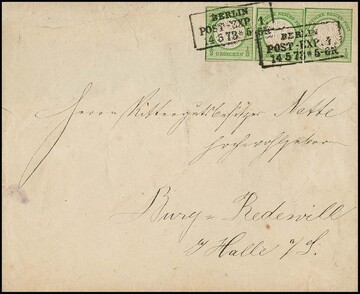 BERLIN
POST-EXP. 1.
14 5 73 * 5-6N.
GROSCHEN
BERLIN
POST-EXP. 1.
14 5 73 * 5-6N.
Herrn Rittergutsbesitzer Nette
Hochwohlgeboren
Burg - Redewill
Halle